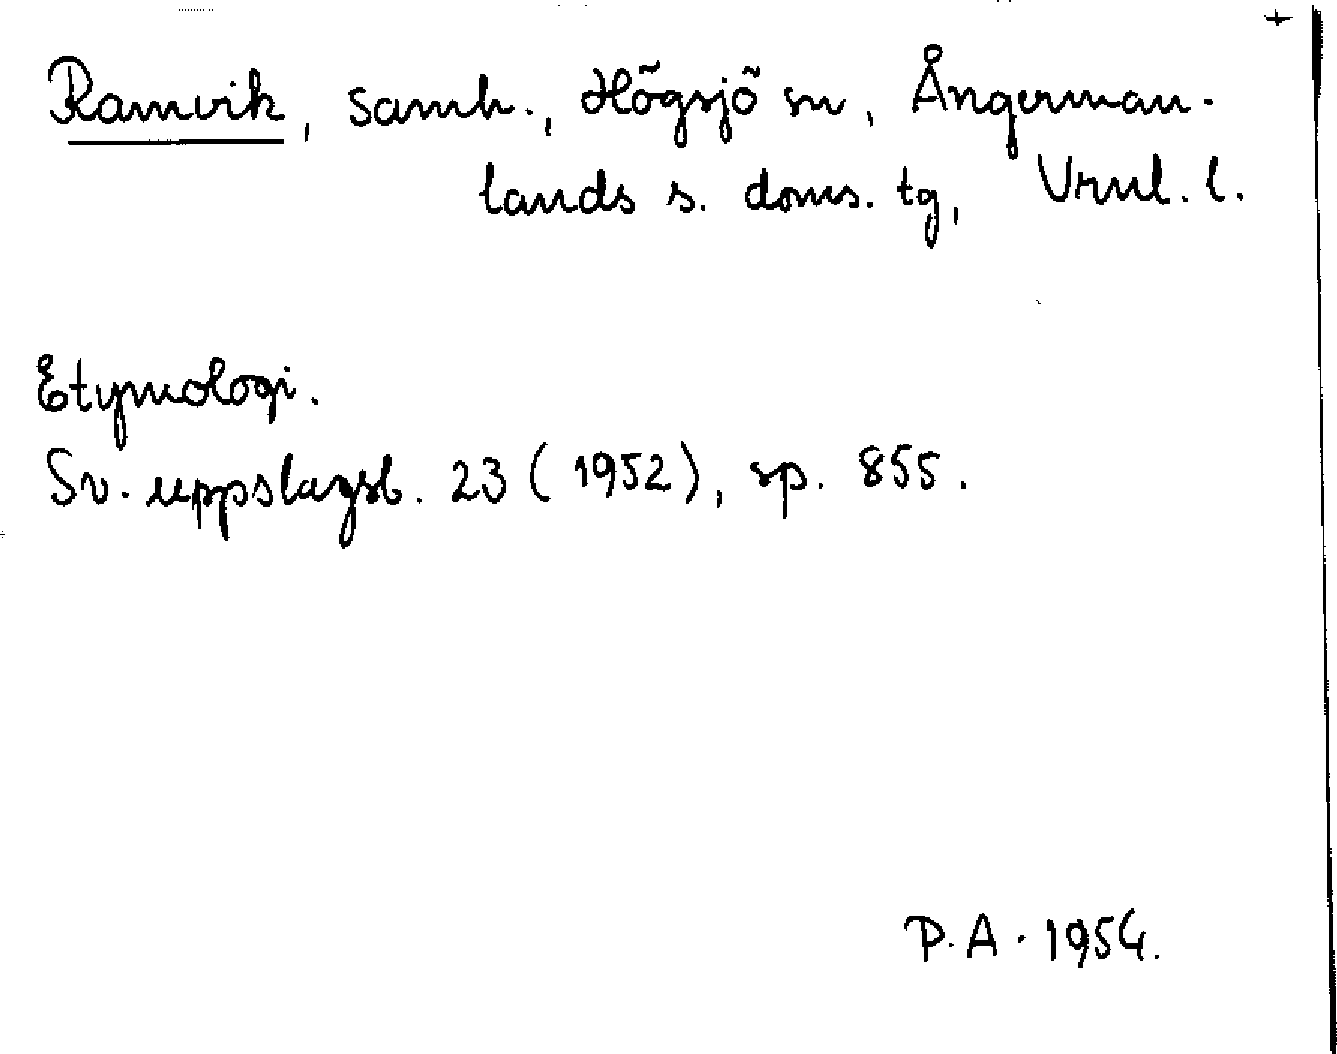 +
Ramvik, samh., Högsjö sn, Ångerman-
lands s. doms. tg, Vrnl. l.
Etymologi.
Sv. uppslagsb. 23 (1952), sp. 855.
P.A. 1954.